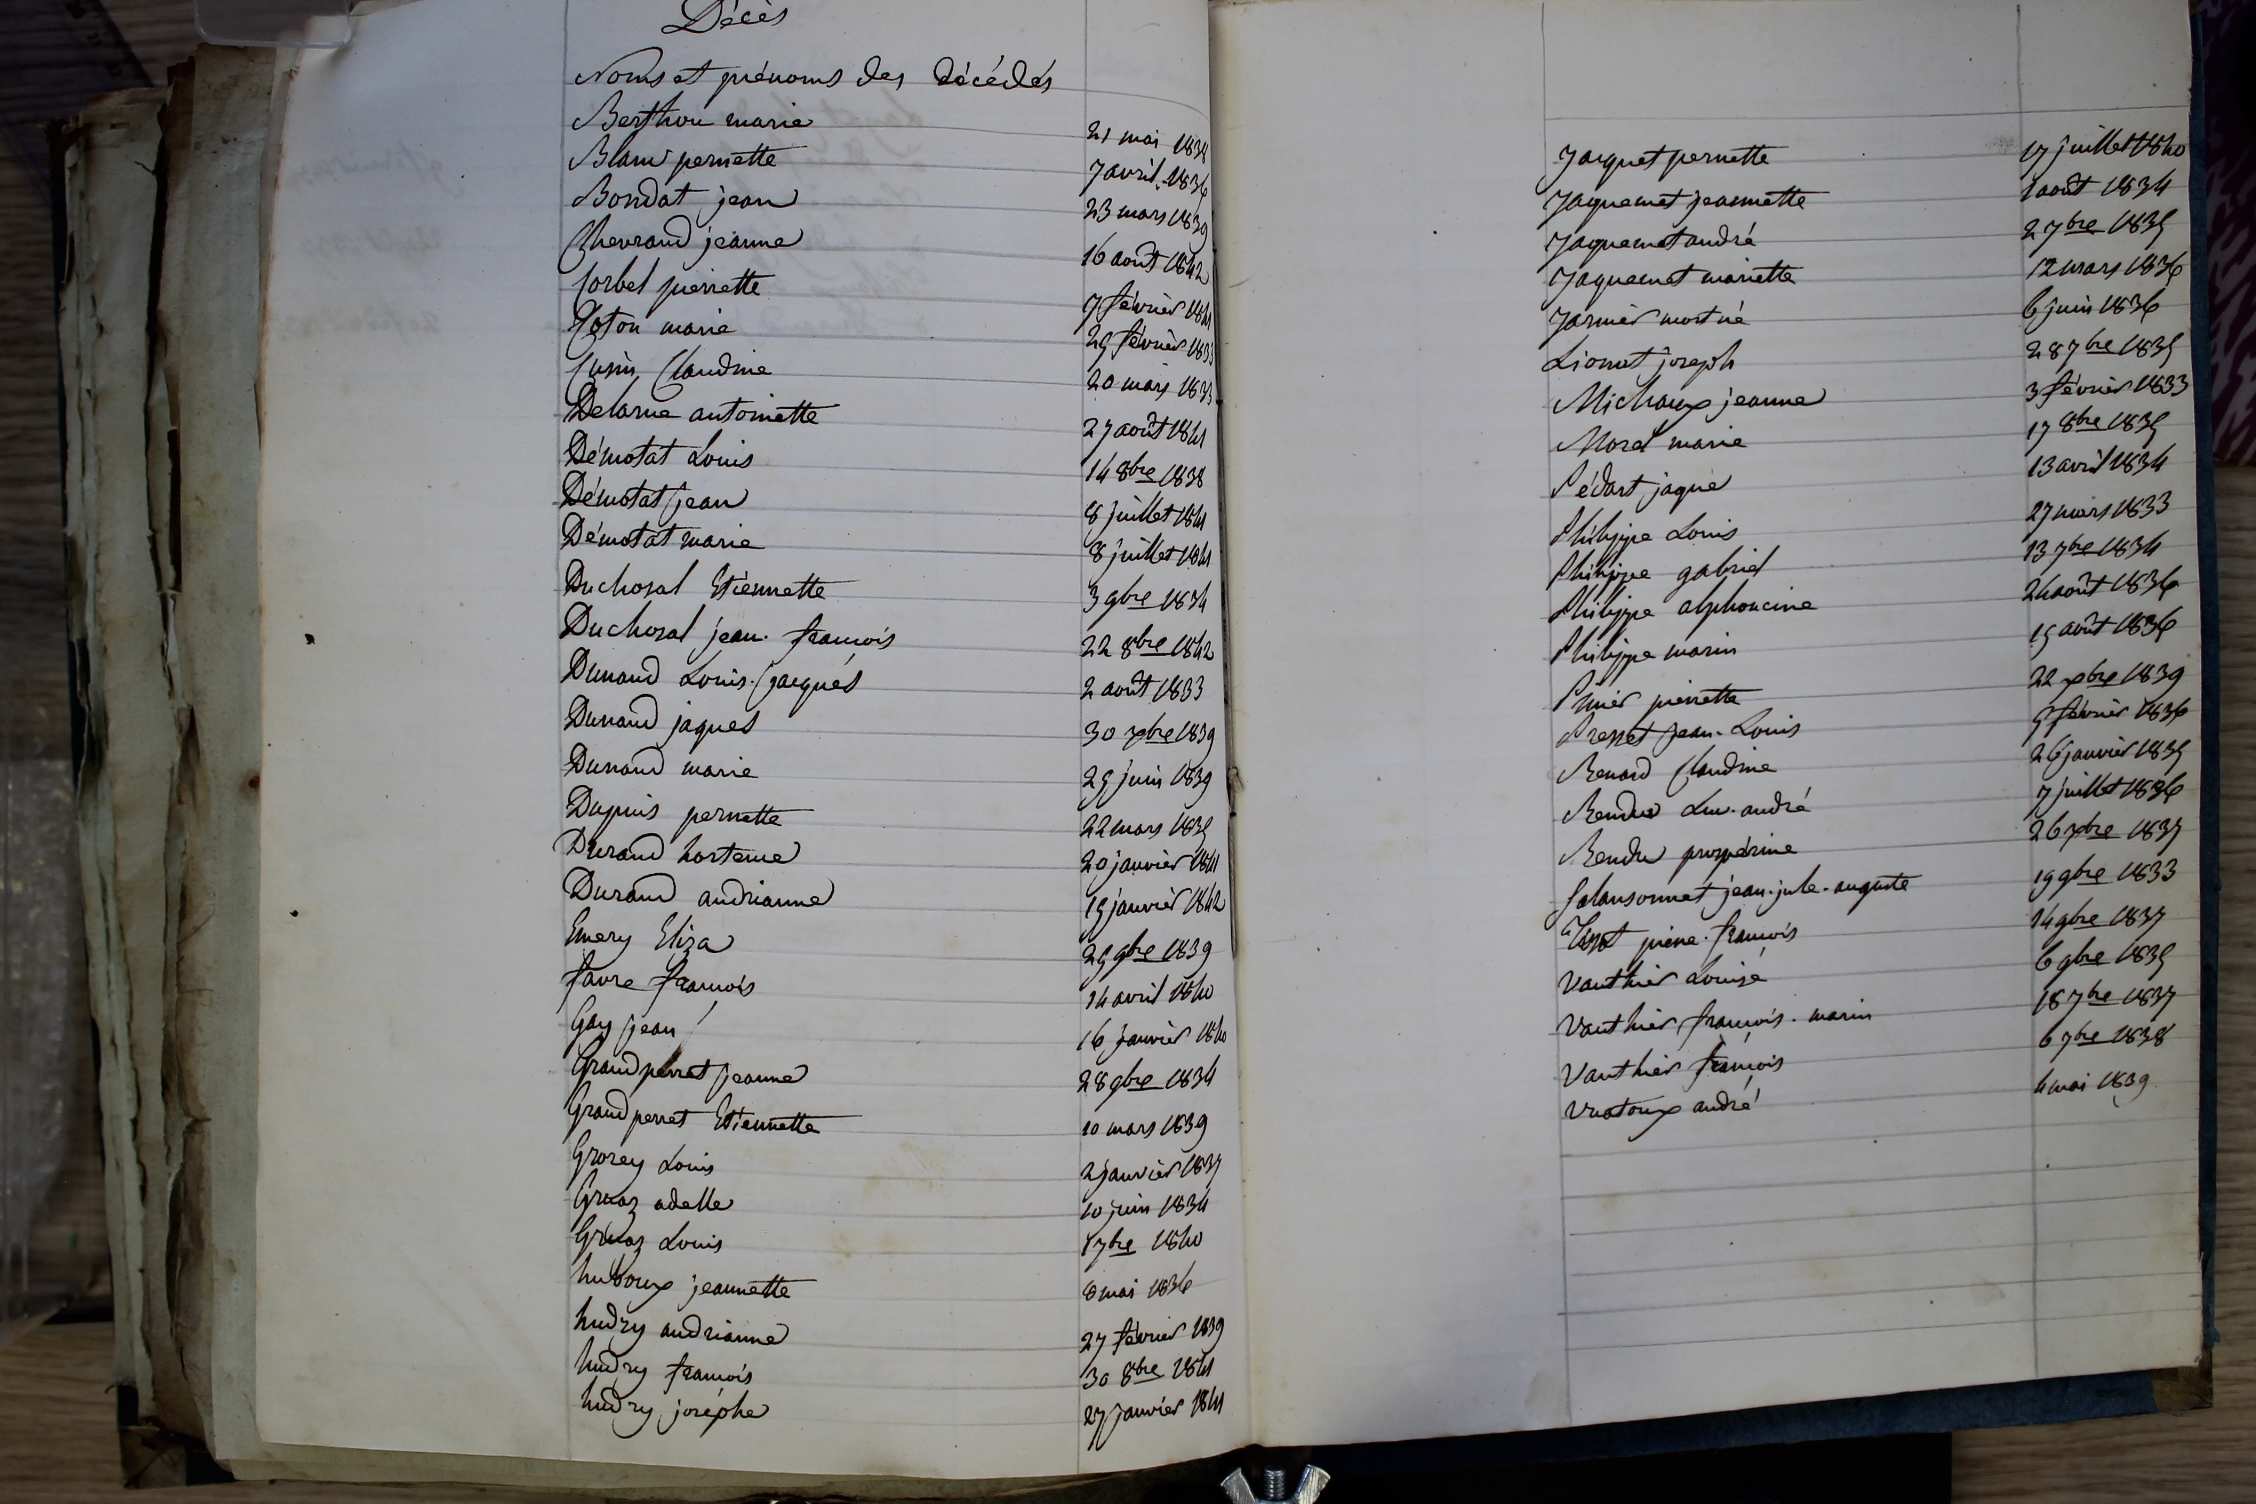 Décès
Noms et prénoms des décédés
Berthou marie 21 mai 1838
Blanc pernette 7 avril 1836
Bondat jean 23 mars 1839
Chevrand jeanne 16 août 1842
Corbel pierrette 7 février 1841
Coton marie 29 février 1833
Cusin Claudine 20 mars 1833
Delarue antoinette 27 août 1841
Démotat Louis 14 8bre 1838
Démotat jean 8 juillet 1841
Démotat marie 8 juillet 1841
Duchosal Etiennette 3 9bre 1834
Duchosal jean-françois 22 8bre 1842
Dunand Louis-jacques 2 août 1833
Dunand jaques 30 xbre 1839
Dunand marie 25 juin 1839
Dupuis pernette 22 mars 1835
Durand hortense 20 janvier 1841
Durand andrianne 15 janvier 1842
Emery Eliza 25 9bre 1839
favre françois 14 avril 1840
Gay jean 16 janvier 1840
Grandperret jeanne 28 9bre 1834
Grandperret Etiennette 10 mars 1839
Grorey Louis 2 janvier 1837
Gruaz adelle 10 juin 1834
Gruaz Louis 1 7bre 1840
huboux jeannette 8 mai 1836
hudry andrianne 27 février 1839
hudry françois 30 8bre 1841
hudry josephe 27 janvier 1841
Jaquet pernette 17 juillet 1840
Jaquemet jeannette 1 août 1834
Jaquemet andré 2 7bre 1835
Jaquemet mariette 12 mars 1836
Jarnier mort né 6 juin 1836
Lionnet joseph 28 7bre 1835
Michaux jeanne 3 février 1833
Morel marie 17 8bre 1835
Pédart jaque 13 avril 1834
Philippe Louis 27 mars 1833
Philippe gabriel 13 7bre 1834
Philippe alphoncine 24 août 1836
Philippe marin 15 août 1836
Prier pierrette 22 xbre 1839
Presset jean-Louis 5 février 1836
Renard Claudine 26 janvier 1835
Rendu Luc-andré 7 juillet 1836
Rendu prospérine 26 xbre 1837
Salansonnet jean-jule-auguste 19 9bre 1833
Tissot pierre-françois 14 9bre 1837
Vauthier Louise 6 9bre 1835
Vauthier françois-marin 18 7bre 1837
Vauthier françois 6 7bre 1838
Vuatoux andré 4 mai 1839